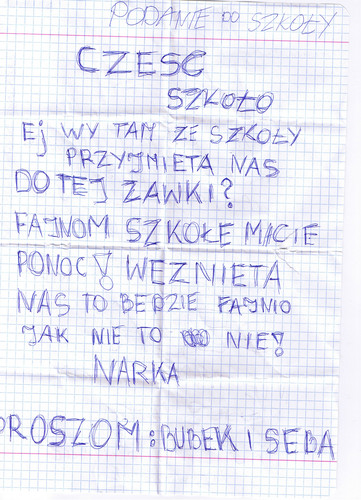 PODANIE DO SZKOŁY
CZESC
SZKOŁO
Ej WY TAM ZE SZKOŁY
PRZYJMIETA NAS
DO TEJ ZAWKI?
FAJNOM SZKOŁE MACIE
PONOC! WEZNIETA
NAS TO BEDZIE FAJNIO
JAK NIE TO NIE!
NARKA
PROSZOM: BUBEK I SEBA